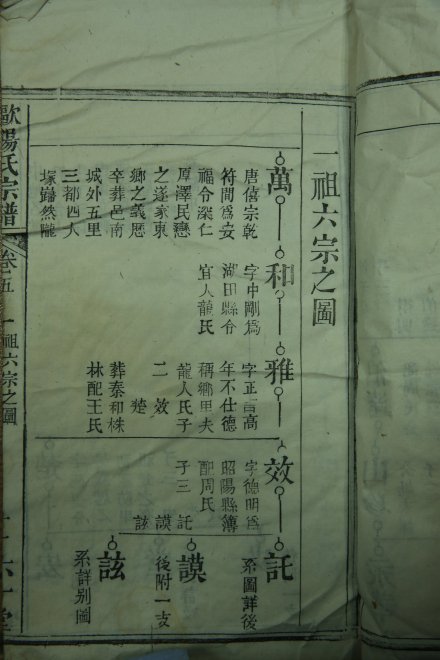 一祖六宗之圖
萬
唐僖宗乾
符間為安
福令深仁
厚澤民戀
之遂家東
鄉之義歷
卒葬邑南
城外五里
三都四人
塚巋然隴
和
字中剛為
湖田縣令
宜人龍氏
雅
字正言高
年不仕德
稱鄉里夫
龍人氏子
二效
楚
葬泰和株
林配王氏
效
字德明為
昭陽縣簿
配周氏
子三託
謨
該
託
系圖詳後
謨
後附一支
該
系詳別圖
歐陽氏宗譜
卷五
一祖六宗之圖
六一堂